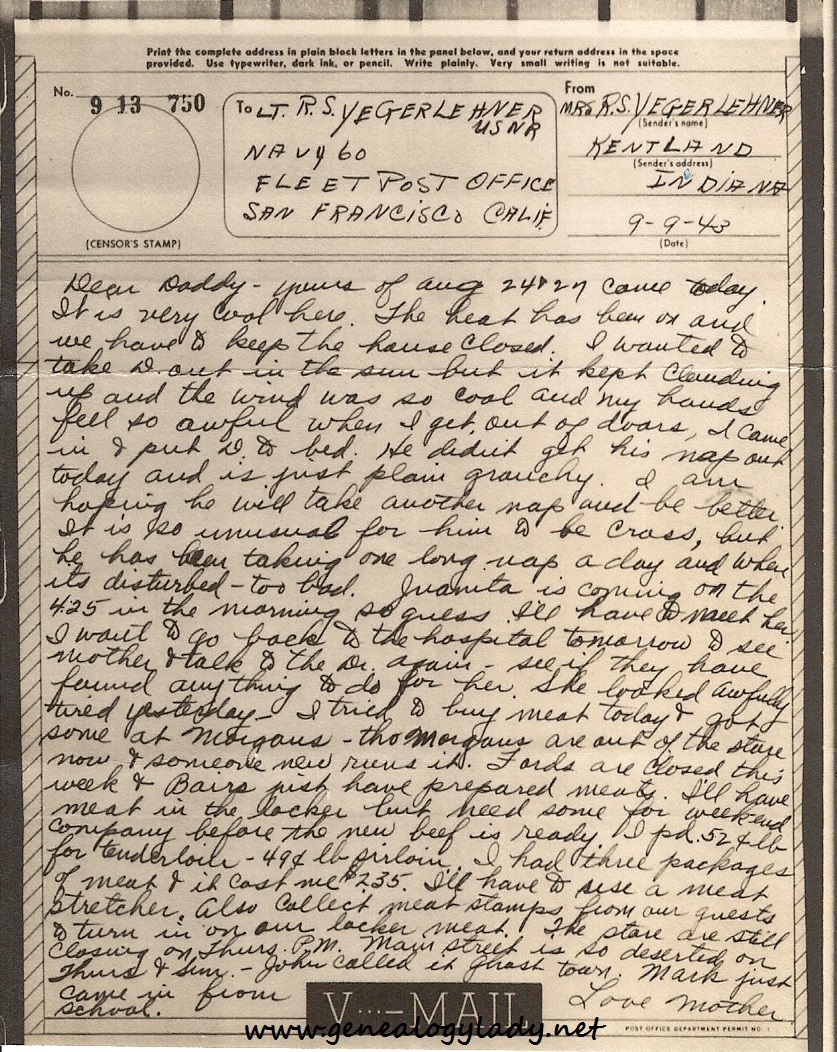 Print the complete address in plain block letters in the panel below, and your return address in the space
provided. Use typewriter, dark ink, or pencil. Write plainly. Very small writing is not suitable.
No.
9 13 750
(CENSOR'S STAMP)
To LT. R. S. YEGERLEHNER
USNR
NAVY 60
FLEET POST OFFICE
SAN FRANCISCO CALIF.
From
MRS R.S. YEGERLEHNER
(Sender's name)
KENTLAND
(Sender's address)
INDIANA
9-9-43
(Date)
Dear Daddy - yours of Aug 24 & 27 came today.
It is very cool here. The heat has been on and
we have to keep the house closed. I wanted to
take D. out in the sun but it kept clouding
up and the wind was so cool and my hands
feel so awful when I get out of doors, I came
in & put D. to bed. He didn't get his nap out
today and is just plain grouchy. I am
hoping he will take another nap and be better
It is so unusual for him to be cross, but
he has been taking one long nap a day and when
its disturbed - too bad. Juanita is coming on the
4:25 in the morning so guess I'll have to meet her.
I want to go back to the hospital tomorrow to see
mother & talk to the Dr. again - see if they have
found anything to do for her. She looked awfully
tired yesterday - I tried to buy meat today & got
some at Morgans - tho Morgans are out of the store
now & someone new runs it. Fords are closed this
week & Bairs just have prepared meats. I'll have
meat in the locker but need some for week-end
company before the new beef is ready. I pd. 52¢ lb
for tenderloin - 49¢ lb sirloin. I had three packages
of meat & it cost me $2.35. I'll have to use a meat
stretcher. Also collect meat stamps from our guests
to turn in on our locker meat. The store are still
closing on Thurs. P.M. Main street is so deserted on
Thurs & Sun. - John called it Ghost town. Mark just
came in from
school.
Love Mother
V···—MAIL
www.genealogylady.net
POST OFFICE DEPARTMENT PERMIT NO. 1